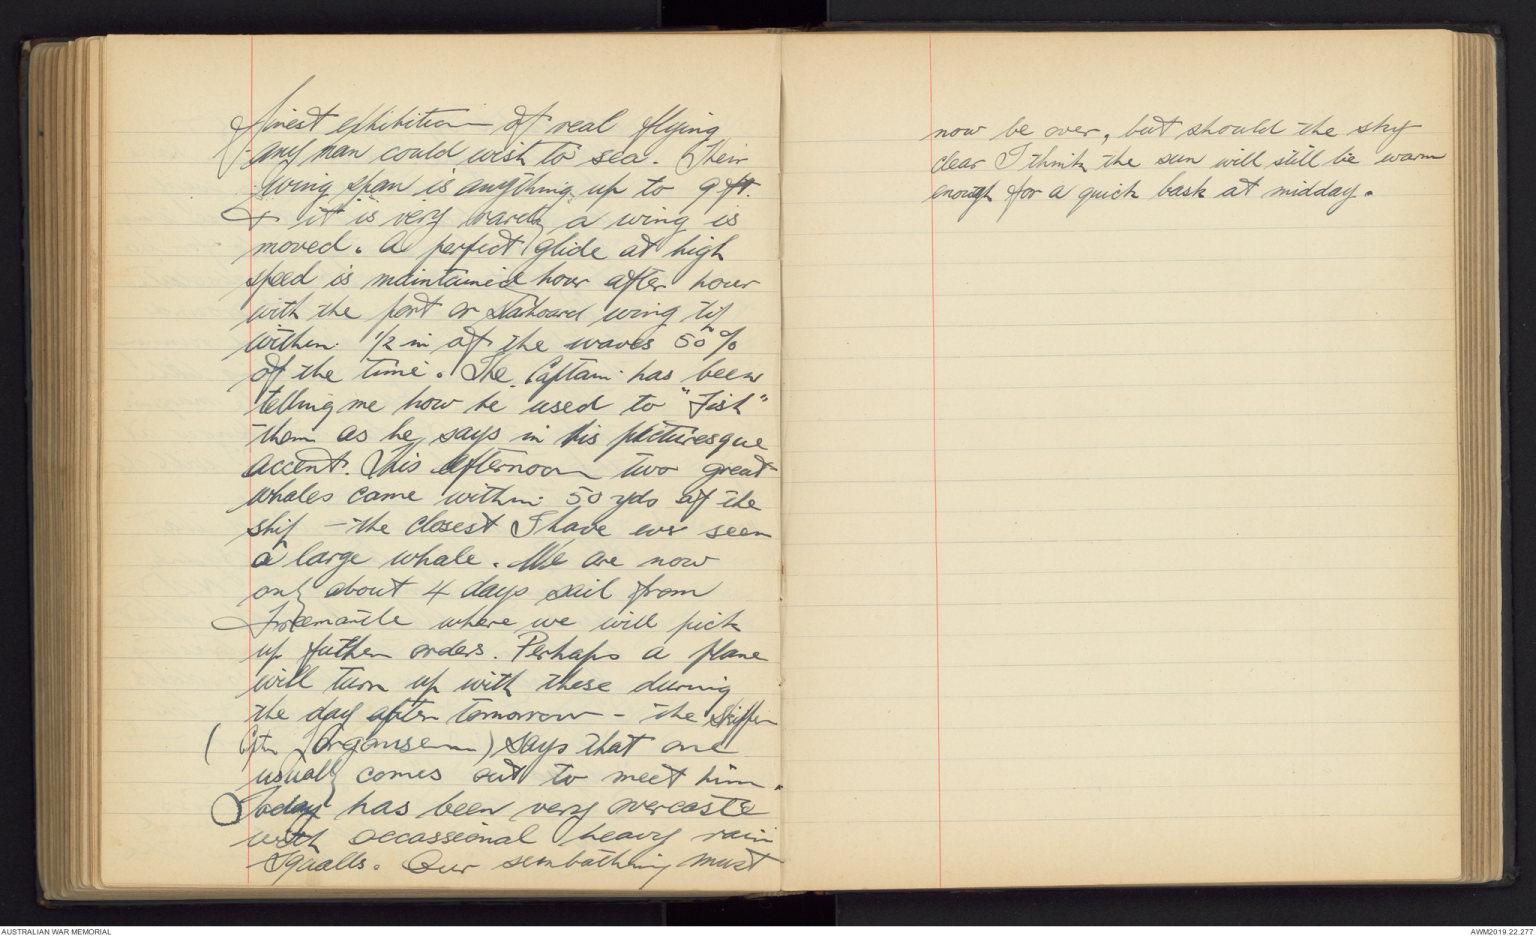 finest exhibition of real flying
any man could wish to sea. Their
wing span is anything up to 9 ft.
& it is very rarely a wing is
moved. A perfect glide at high
speed is maintained hour after hour
with the port or staboard wing tip
within 1/2 in of the waves 50%
of the time. The Captain has been
telling me how he used to "Fish"
them as he says in his picturesque
accent. This afternoon two great
whales came within 50 yds of the
ship - the closest I have ever seen
a large whale. We are now
only about 4 days sail from
Freemantle where we will pick
up futher orders. Perhaps a plane
will turn up with these during
the day after tomorrow - the skipper
(Cptn Jorgansenn) says that one
usually comes out to meet him.
Today has been very overcaste
with occassional heavy rain
squalls. Our sunbathing must
now be over, but should the sky
clear I think the sun will still be warm
enough for a quick bask at midday.
AUSTRALIAN WAR MEMORIAL
AWM2019.22.277